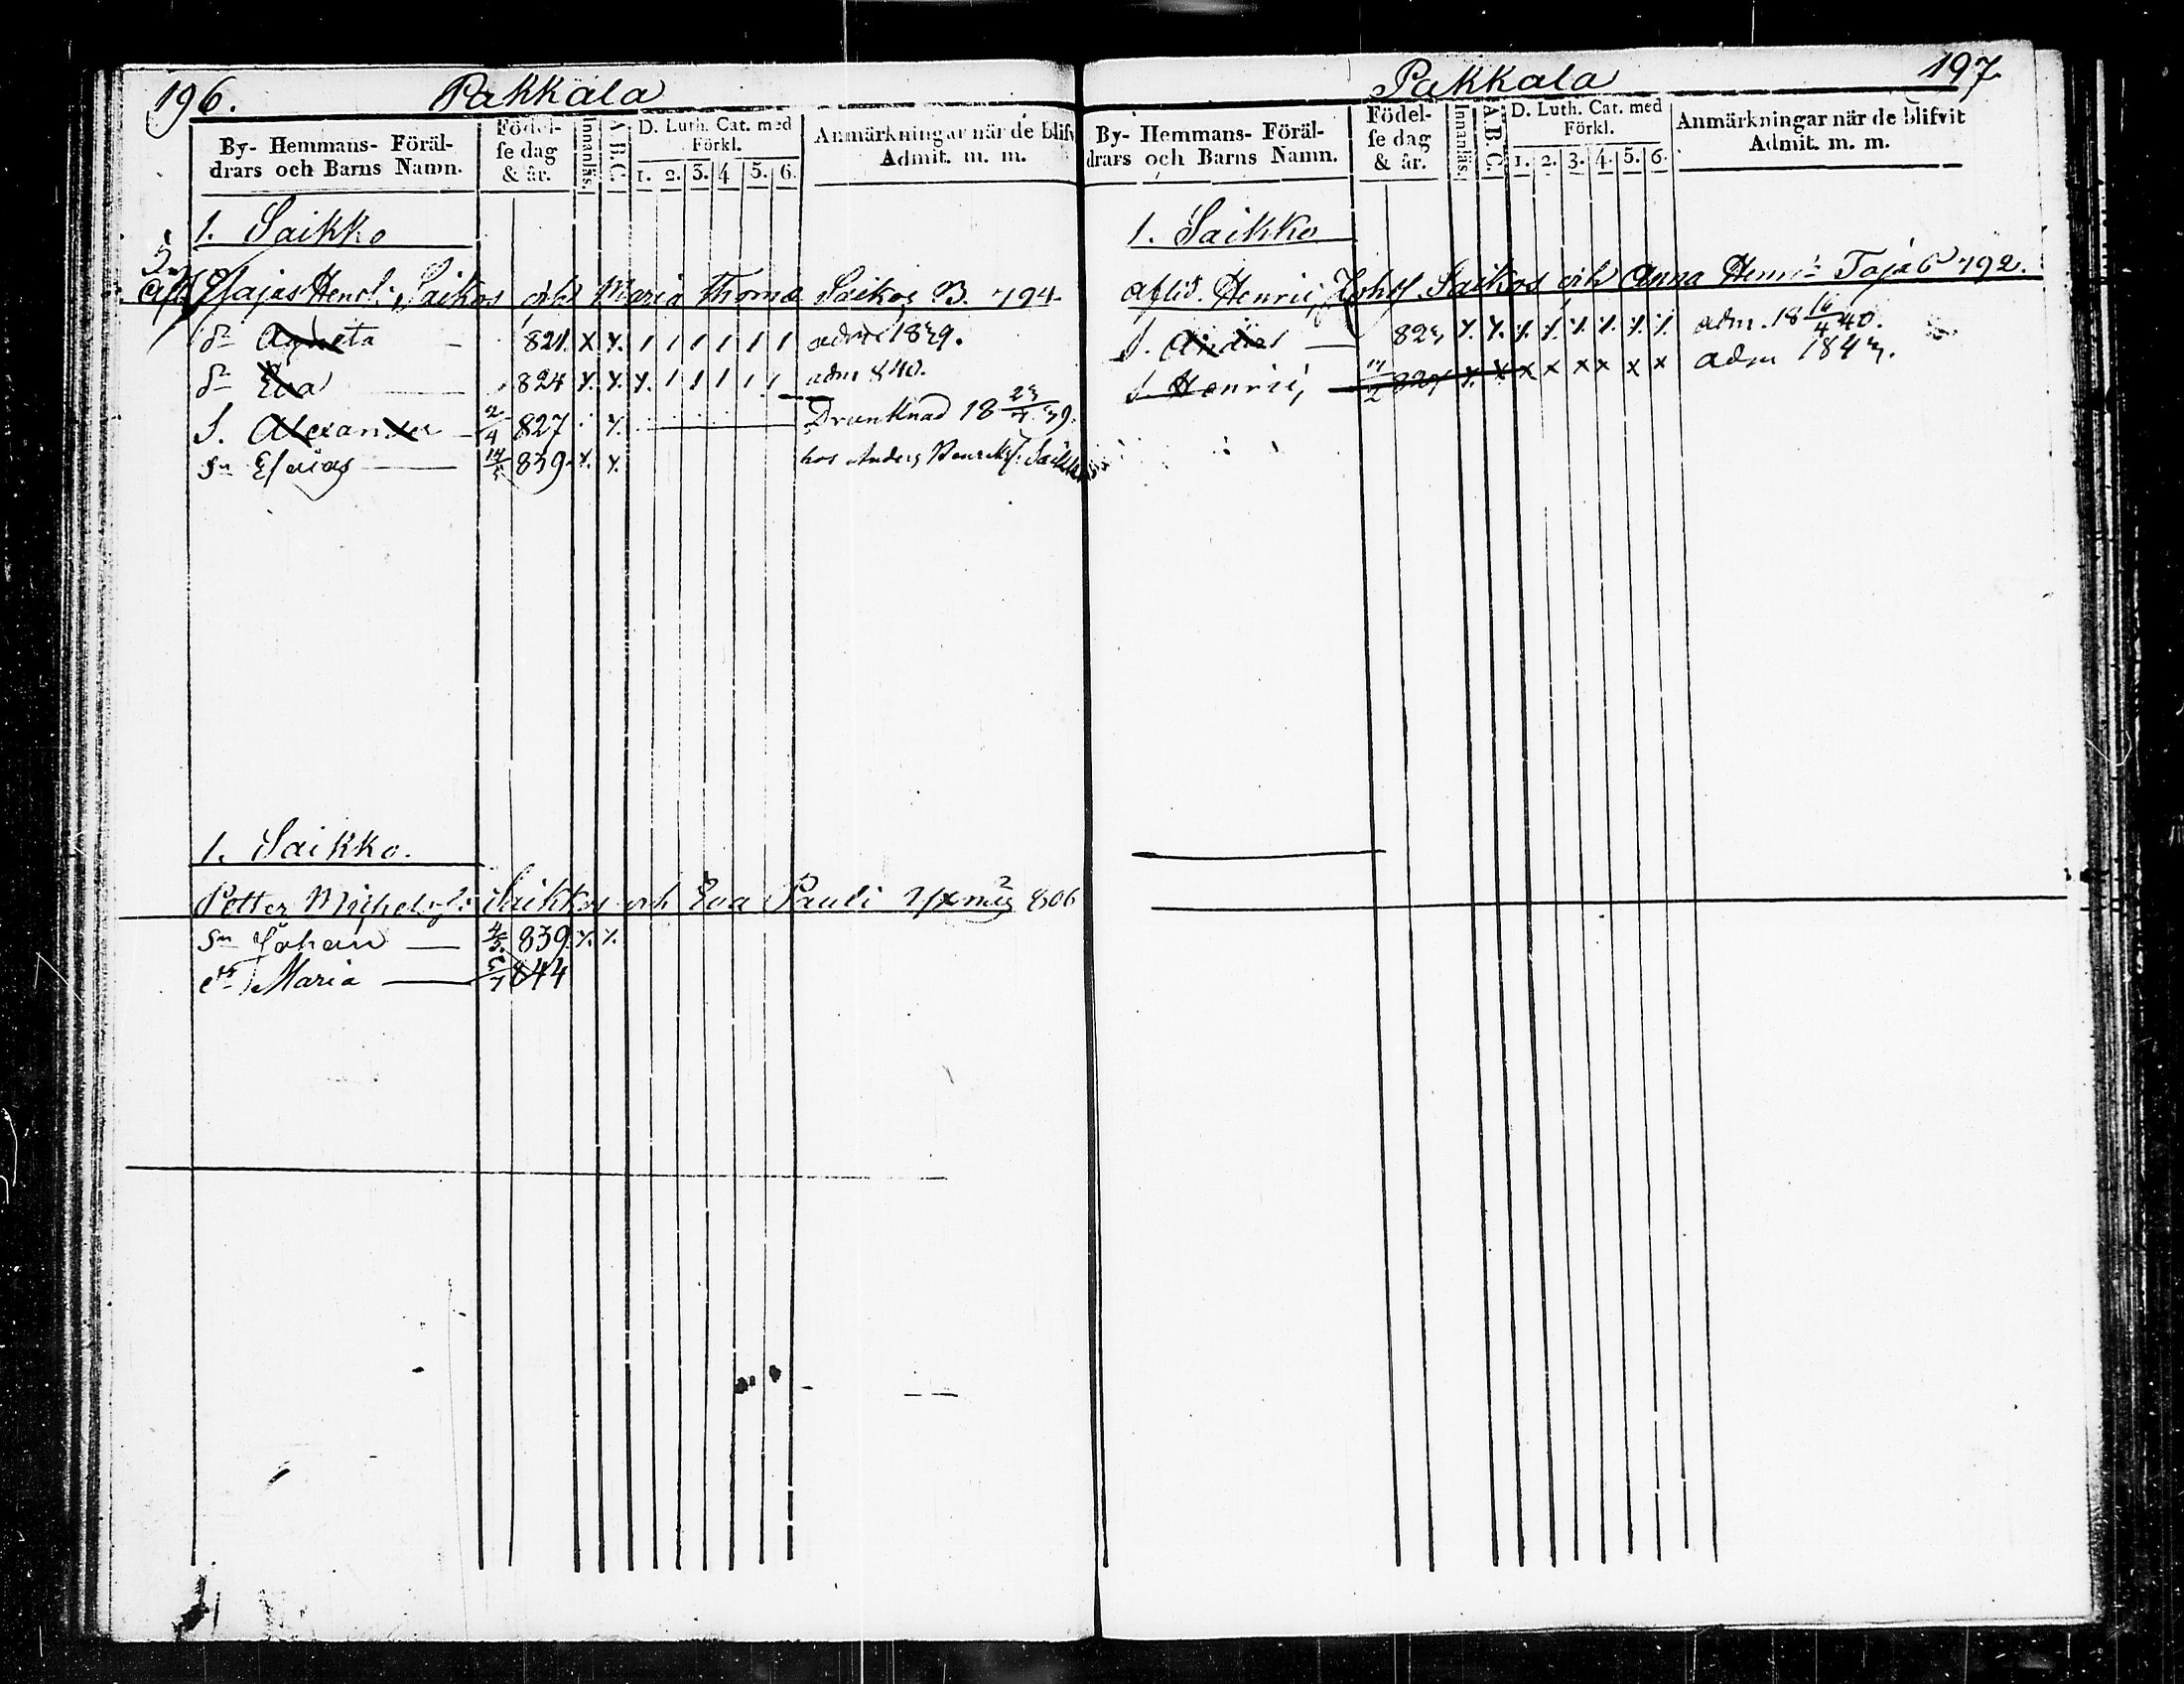 196. Pakkala
By- Hemmans- Föräl-
drars och Barns Namn.
Födel-
se dag
& år.
Innanläs.
A B C.
D. Luth. Cat. med
Förkl.
1. 2. 3. 4 5. 6.
Anmärkningar när de blifv
Admit. m. m.
1. Saikko
Esajas Henr: Saikos och Maria Thoma Saikos B. 794.
dr Agneta 821. x x. 1 1 1 1 1 1 adm 1839.
dr Eva 824 x. x. x. 1 1 1 1 1 adm 840.
S. Alexander 2/4 827 x. Drunknad 18 23/7 39.
Sn Esaias 14/5 839. x. x. hos Anders Henriksf. Saikko
1. Saikko.
Petter Michelsf: Saikkos och Eva Pauli 806
Sn Johan 4/5. 839. x. x.
dr Maria 5/7 844
Pakkala 197.
By- Hemmans- Föräl-
drars och Barns Namn.
Födel-
se dag
& år.
Innanläs.
A. B. C.
D. Luth. Cat. med
Förkl.
1. 2. 3. 4. 5. 6.
Anmärkningar när de blifvit
Admit. m. m.
1. Saikko
aflid. Henric Johsf. Saikos och Anna Henr: 792.
S. Anders 823 x. x. x. x. x. x. x. x. adm. 18 16/4 40.
S. Henric, 17/2 827 x. x. x x x x x x adm 1843.